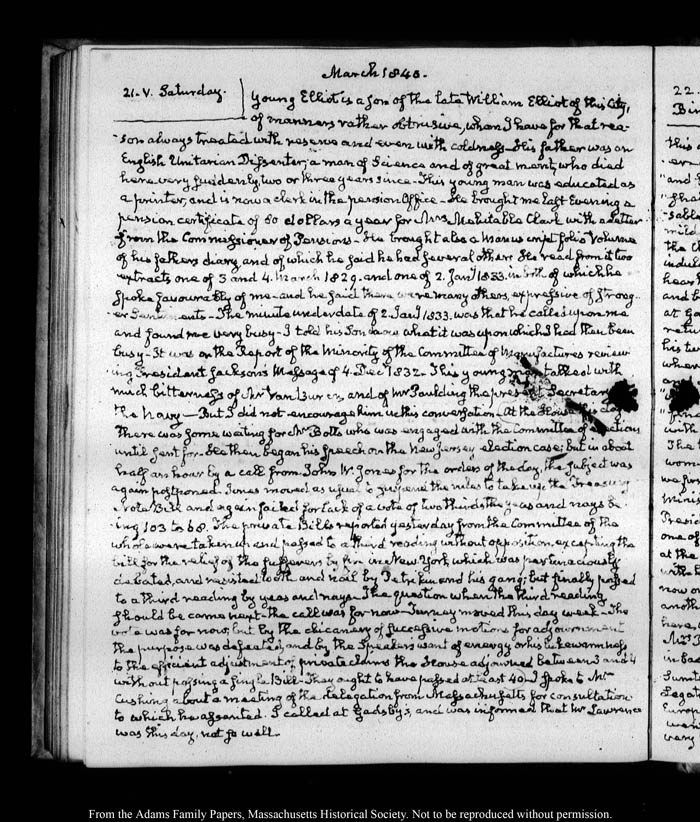 March 1840.
21. V. Saturday.
Young Elliot is a Son of the late William Elliot of this City,
of manners rather obtrusive, whom I have for that rea-
son always treated with reserve and even with coldness. His father was an
English Unitarian Dissenter; a man of Science and of great merit, who died
here very suddenly, two or three years since. This young man was educated as
a printer, and is now a clerk in the pension Office. He brought me last Evening a
pension certificate of 80 dollars a year for Mrs Mehitable Clark with a letter
from the Commissioner of Pensions. He brought also a Manuscript folio Volume
of his fathers diary and of which he said he had several others. He read from it two
extracts one of 3 and 4. March 1829. and one of 2. Jany 1833. in both of which he
spoke favourably of me and he said there were many others, expressive of strong-
er Sentiments. The minute under date of 2. Jany 1833. was that he called upon me
and found me very busy. I told his Son what it was upon which I had then been
busy. It was on the Report of the Minority of the Committee of Manufactures review
ing President Jackson's Message of 4. Dec 1832. This young man talked with
much bitterness of Mr Van Buren, and of Mr Paulding the present Secretary
the Navy — But I did not encourage him in this conversation. At the House this day
There was some waiting for Mr Botts who was engaged with the Committee of elections
until sent for. He then began his speech on the New Jersey election case; but in about
half an hour by a call from John W. Jones for the orders of the day, the subject was
again postponed. Jones moved as usual to suspend the rules to take up the Treasury
Note Bill and again failed for lack of a vote of two thirds the yeas and nays be
ing 103 to 68. The private Bills reported yesterday from the Committee of the
whole were taken up and passed to a third reading without opposition, excepting the
bill for the relief of the sufferers by fire in New York, which was pertinaciously
debated, and resisted tooth and nail by Petrikin and his gang; but finally passed
to a third reading by yeas and nays. The question when the third reading
should be came next. the call was for now. Turney moved this day week. The
vote was for now, but by the chicanery of successive motions for adjournment
the purpose was defeated, and by the Speakers want of energy or his lukewarmness
to the efficient adjustment of private claims the House adjourned between 3 and 4
without passing a single Bill. They ought to have passed at least 40. I spoke to Mr
Cushing about a meeting of the delegation from Massachusetts for consultation
to which he assented. I called at Gadsby's, and was informed that Mr Lawrence
was this day, not so well.
22.
From the Adams Family Papers, Massachusetts Historical Society. Not to be reproduced without permission.